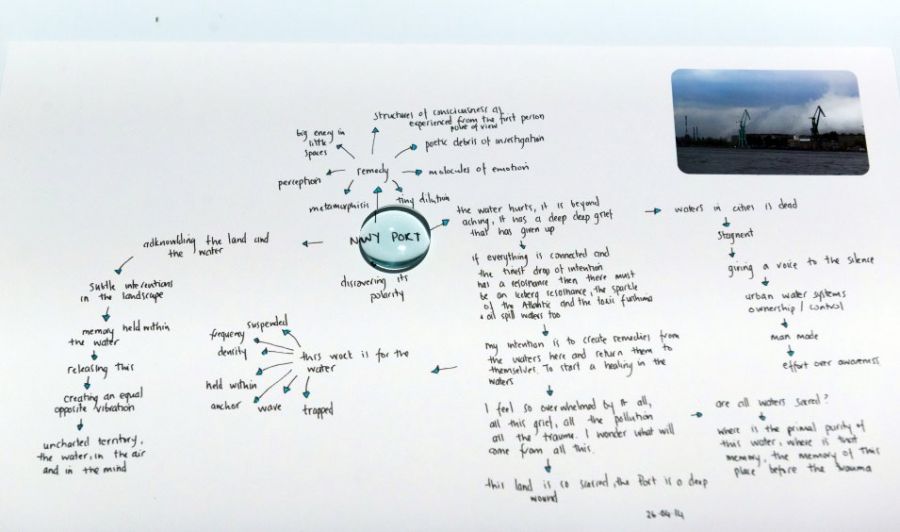 structures of consciousness as
experienced from the first person
point of view
big energy in
little
spaces
poetic debris of investigation
remedy
molecules of emotion
perception
metamorphisis
tiny dilution
NAVY PORT
discovering its
polarity
adknowlding the land and
the water
subtle interventions
in the landscape
memory held within
the water
releasing this
creating an equal
opposite vibration
uncharted territory,
the water, in the air
and in the mind
the water hurts, it is beyond
aching, it has a deep deep grief
that has given up
if everything is connected and
the tiniest drop of intention
has a resonance then there must
be an iceberg resonance, the sparkle
of the Atlantic and the toxic
oil spill waters too
my intention is to create remedies from
the waters here and return them to
themselves. To start a healing in the
waters
this work is for the
water
suspended
frequency
density
held within
anchor
wave
trapped
I feel so overwhelmed by it all,
all this grief, all the pollution
all the trauma. I wonder what will
come from all this.
this land is so scarred, the Port is a deep
wound
waters in cities is dead
stagnent
giving a voice to the silence
urban water systems
ownership / control
man made
effort over awareness
are all waters sacred?
where is the primal purity of
this water, where is that
memory, the memory of this
place before the trauma
26.04.14